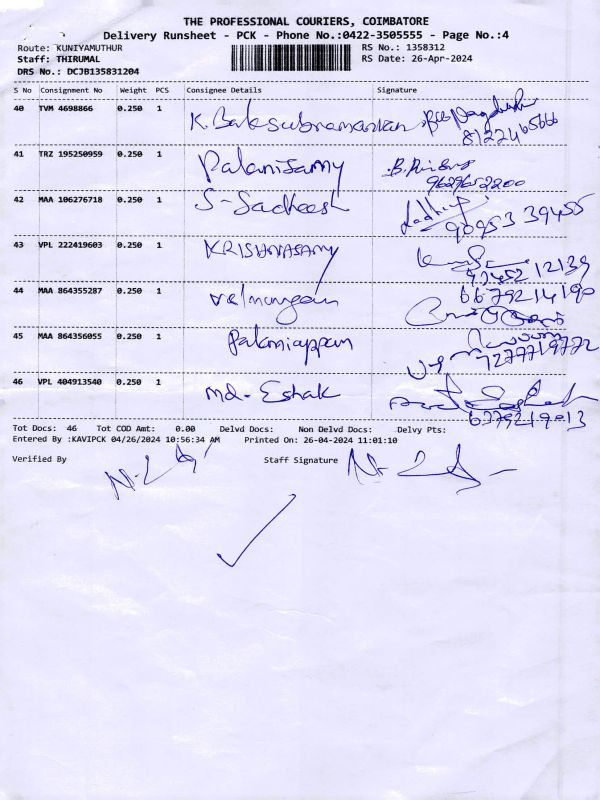 THE PROFESSIONAL COURIERS, COIMBATORE
Delivery Runsheet - PCK - Phone No.:0422-3505555 - Page No.:4
Route: KUNIYAMUTHUR RS No.: 1358312
Staff: THIRUMAL RS Date: 26-Apr-2024
DRS No.: DCJB135831204
S No Consignment No Weight PCS Consignee Details Signature
40 TVM 4698866 0.250 1 K. Balasubramanian
8122465666
41 TRZ 195250959 0.250 1 Palanisamy
9629652200
42 MAA 106276718 0.250 1 S-Sadheesh
90953 39455
43 VPL 222419603 0.250 1 KRISHNASAMY
92452 12139
44 MAA 864355287 0.250 1 velmurugan 6679214190
45 MAA 864356055 0.250 1 Palaniappan
7277719772
46 VPL 404913540 0.250 1 Md-Eshak
6379219013
Tot Docs: 46 Tot COD Amt: 0.00 Delvd Docs: Non Delvd Docs: Delvy Pts:
Entered By :KAVIPCK 04/26/2024 10:56:34 AM Printed On: 26-04-2024 11:01:10
Verified By Staff Signature